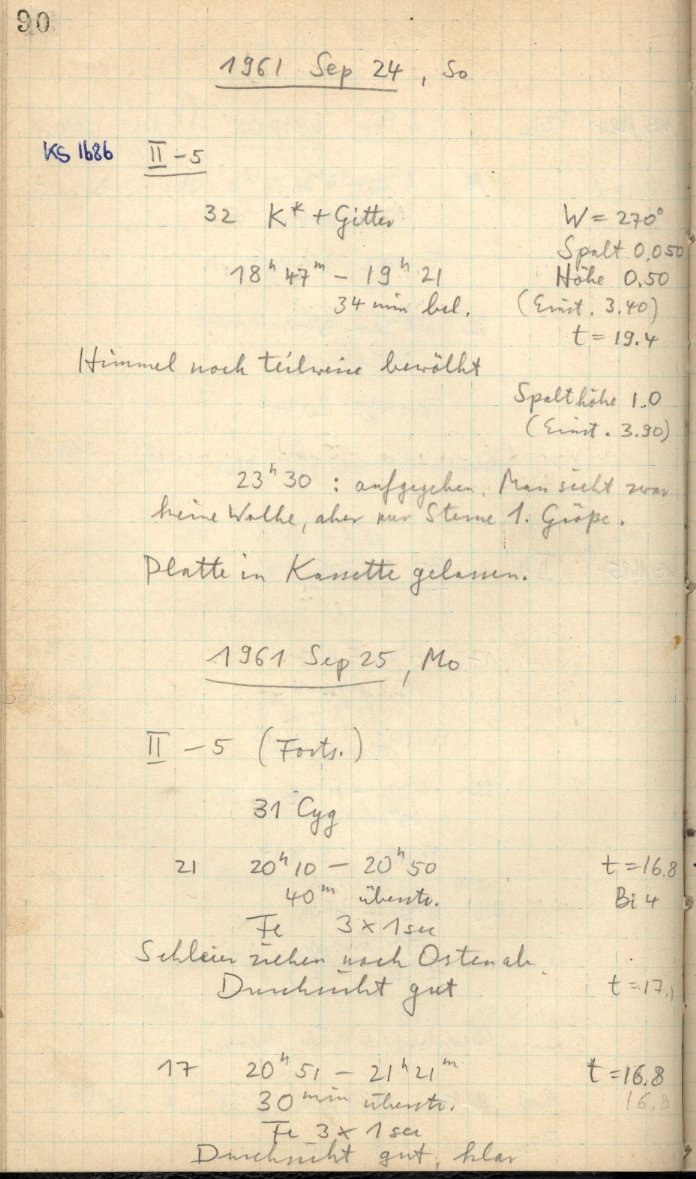 90
1961 Sep 24, So
KS 1686 II-5
32 K* + Gitter W = 270°
Spalt 0,050
18ʰ 47ᵐ - 19ʰ 21 Höhe 0,50
34 min bel. (Einst. 3.40)
t = 19.4
Himmel noch teilweise bewölkt
Spalthöhe 1.0
(Einst. 3.90)
23ʰ 30 : aufgegeben. Man sieht zwar
keine Wolke, aber nur Sterne 1. Größe.
Platte in Kassette gelassen.
1961 Sep 25, Mo
II - 5 (Forts.)
31 Cyg
21 20ʰ 10 - 20ʰ 50 t = 16.8
40ᵐ überstr. Bi 4
Fe 3 x 1 sec
Schleier ziehen nach Osten ab.
Durchsicht gut t = 17.1
17 20ʰ 51 - 21ʰ 21ᵐ t = 16.8
30 min überstr. 16.8
Fe 3 x 1 sec
Durchsicht gut, klar